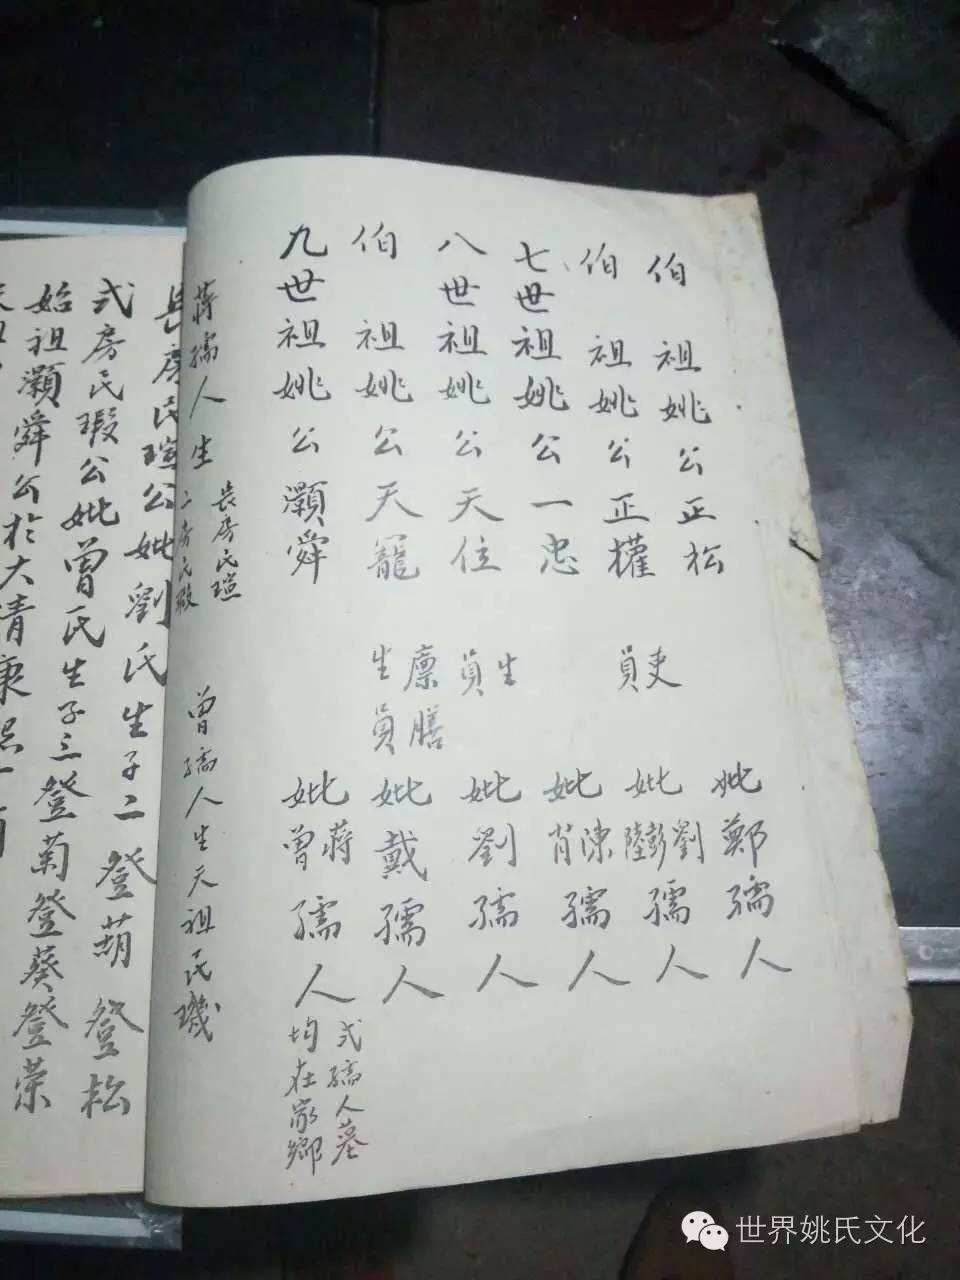 伯祖姚公正松 妣鄭孺人
伯祖姚公正權 吏員 妣劉彭陸孺人
七世祖姚公一忠 妣陳肖孺人
八世祖姚公天位 生員 妣劉孺人
伯祖姚公天寵 廩膳生員 妣戴孺人
九世祖姚公灝舜 妣蔣曾孺人 弍孺人墓均在家鄉
蔣孺人生 長房民瑄 二房民瑕 曾孺人生天祖民璣
長房民瑄公妣劉氏生子二登葫登松
弍房民瑕公妣曾氏生子三登菊登葵登荣
始祖灝舜公於大清康熙
世界姚氏文化